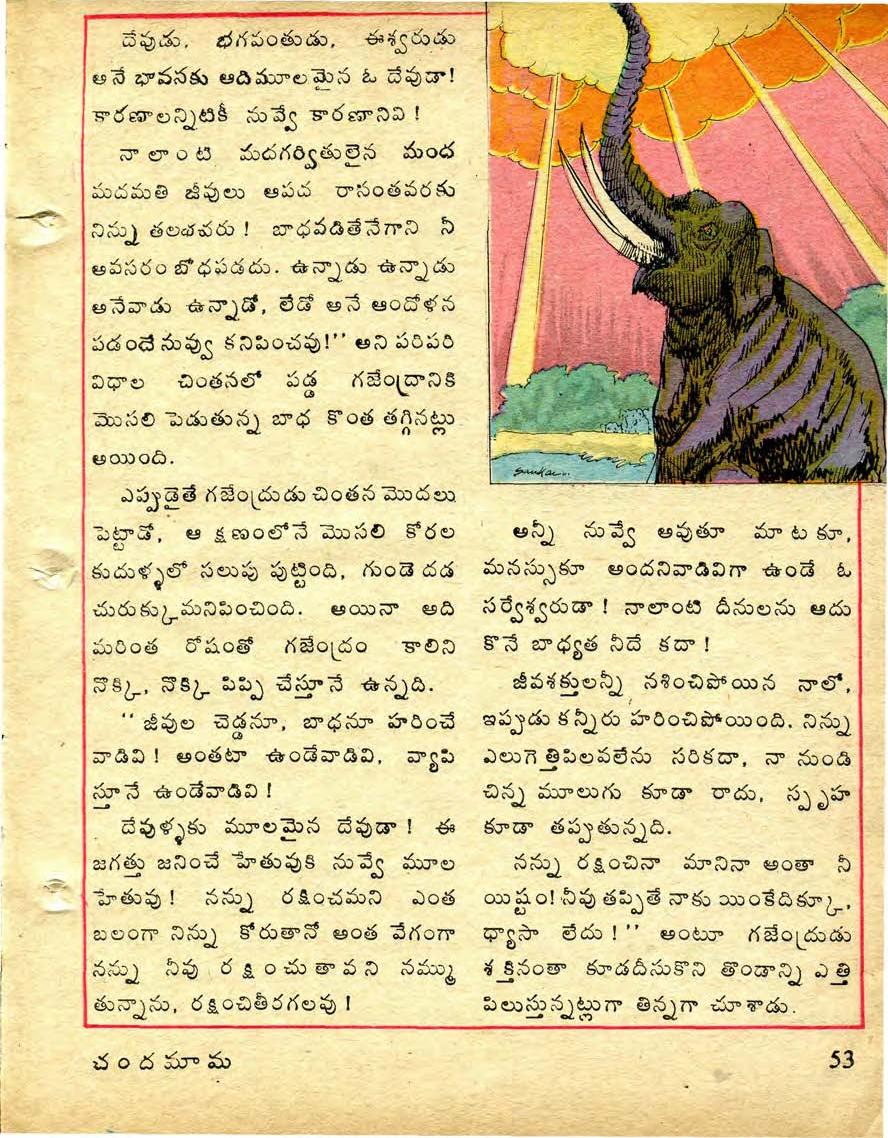 దేవుడు, భగవంతుడు, ఈశ్వరుడు
అనే భావనకు ఆదిమూలమైన ఓ దేవుడా!
కారణాలన్నిటికీ నువ్వే కారణానివి !
నాలాంటి మదగర్వితులైన మంద
మదమతి జీవులు ఆపద రానంతవరకు
నిన్ను తలచరు ! బాధపడితేనేగాని నీ
అవసరం బోధపడదు. ఉన్నాడు ఉన్నాడు
అనేవాడు ఉన్నాడో, లేడో అనే ఆందోళన
పడందే నువ్వు కనిపించవు!'' అని పరిపరి
విధాల చింతనలో పడ్డ గజేంద్రానికి
మొసలి పెడుతున్న బాధ కొంత తగ్గినట్లు
అయింది.
ఎప్పుడైతే గజేంద్రుడు చింతన మొదలు
పెట్టాడో, ఆ క్షణంలోనే మొసలి కోరల
కుదుళ్ళలో సలుపు పుట్టింది, గుండె దడ
చురుక్కుమనిపించింది. అయినా అది
మరింత రోషంతో గజేంద్రం కాలిని
నొక్కి, నొక్కి పిప్పి చేస్తూనే ఉన్నది.
'' జీవుల చెడ్డనూ, బాధనూ హరించే
వాడివి ! అంతటా ఉండేవాడివి, వ్యాపి
స్తూనే ఉండేవాడివి !
దేవుళ్ళకు మూలమైన దేవుడా ! ఈ
జగత్తు జనించే హేతువుకి నువ్వే మూల
హేతువు ! నన్ను రక్షించమని ఎంత
బలంగా నిన్ను కోరుతానో అంత వేగంగా
నన్ను నీవు రక్షించుతావని నమ్ము
తున్నాను, రక్షించితీరగలవు !
Sankar...
అన్నీ నువ్వే అవుతూ మాటకూ,
మనస్సుకూ అందనివాడివిగా ఉండే ఓ
సర్వేశ్వరుడా ! నాలాంటి దీనులను ఆదు
కొనే బాధ్యత నీదే కదా !
జీవశక్తులన్నీ నశించిపోయిన నాలో,
ఇప్పుడు కన్నీరు హరించిపోయింది. నిన్ను
ఎలుగెత్తిపిలవలేను సరికదా, నా నుండి
చిన్న మూలుగు కూడా రాదు, స్పృహ
కూడా తప్పుతున్నది.
నన్ను రక్షించినా మానినా అంతా నీ
యిష్టం! నీవు తప్పితే నాకు యింకేదిక్కూ,
ధ్యాసా లేదు !'' అంటూ గజేంద్రుడు
శక్తినంతా కూడదీసుకొని తొండాన్ని ఎత్తి
పిలుస్తున్నట్లుగా తిన్నగా చూశాడు.
చందమామ
53